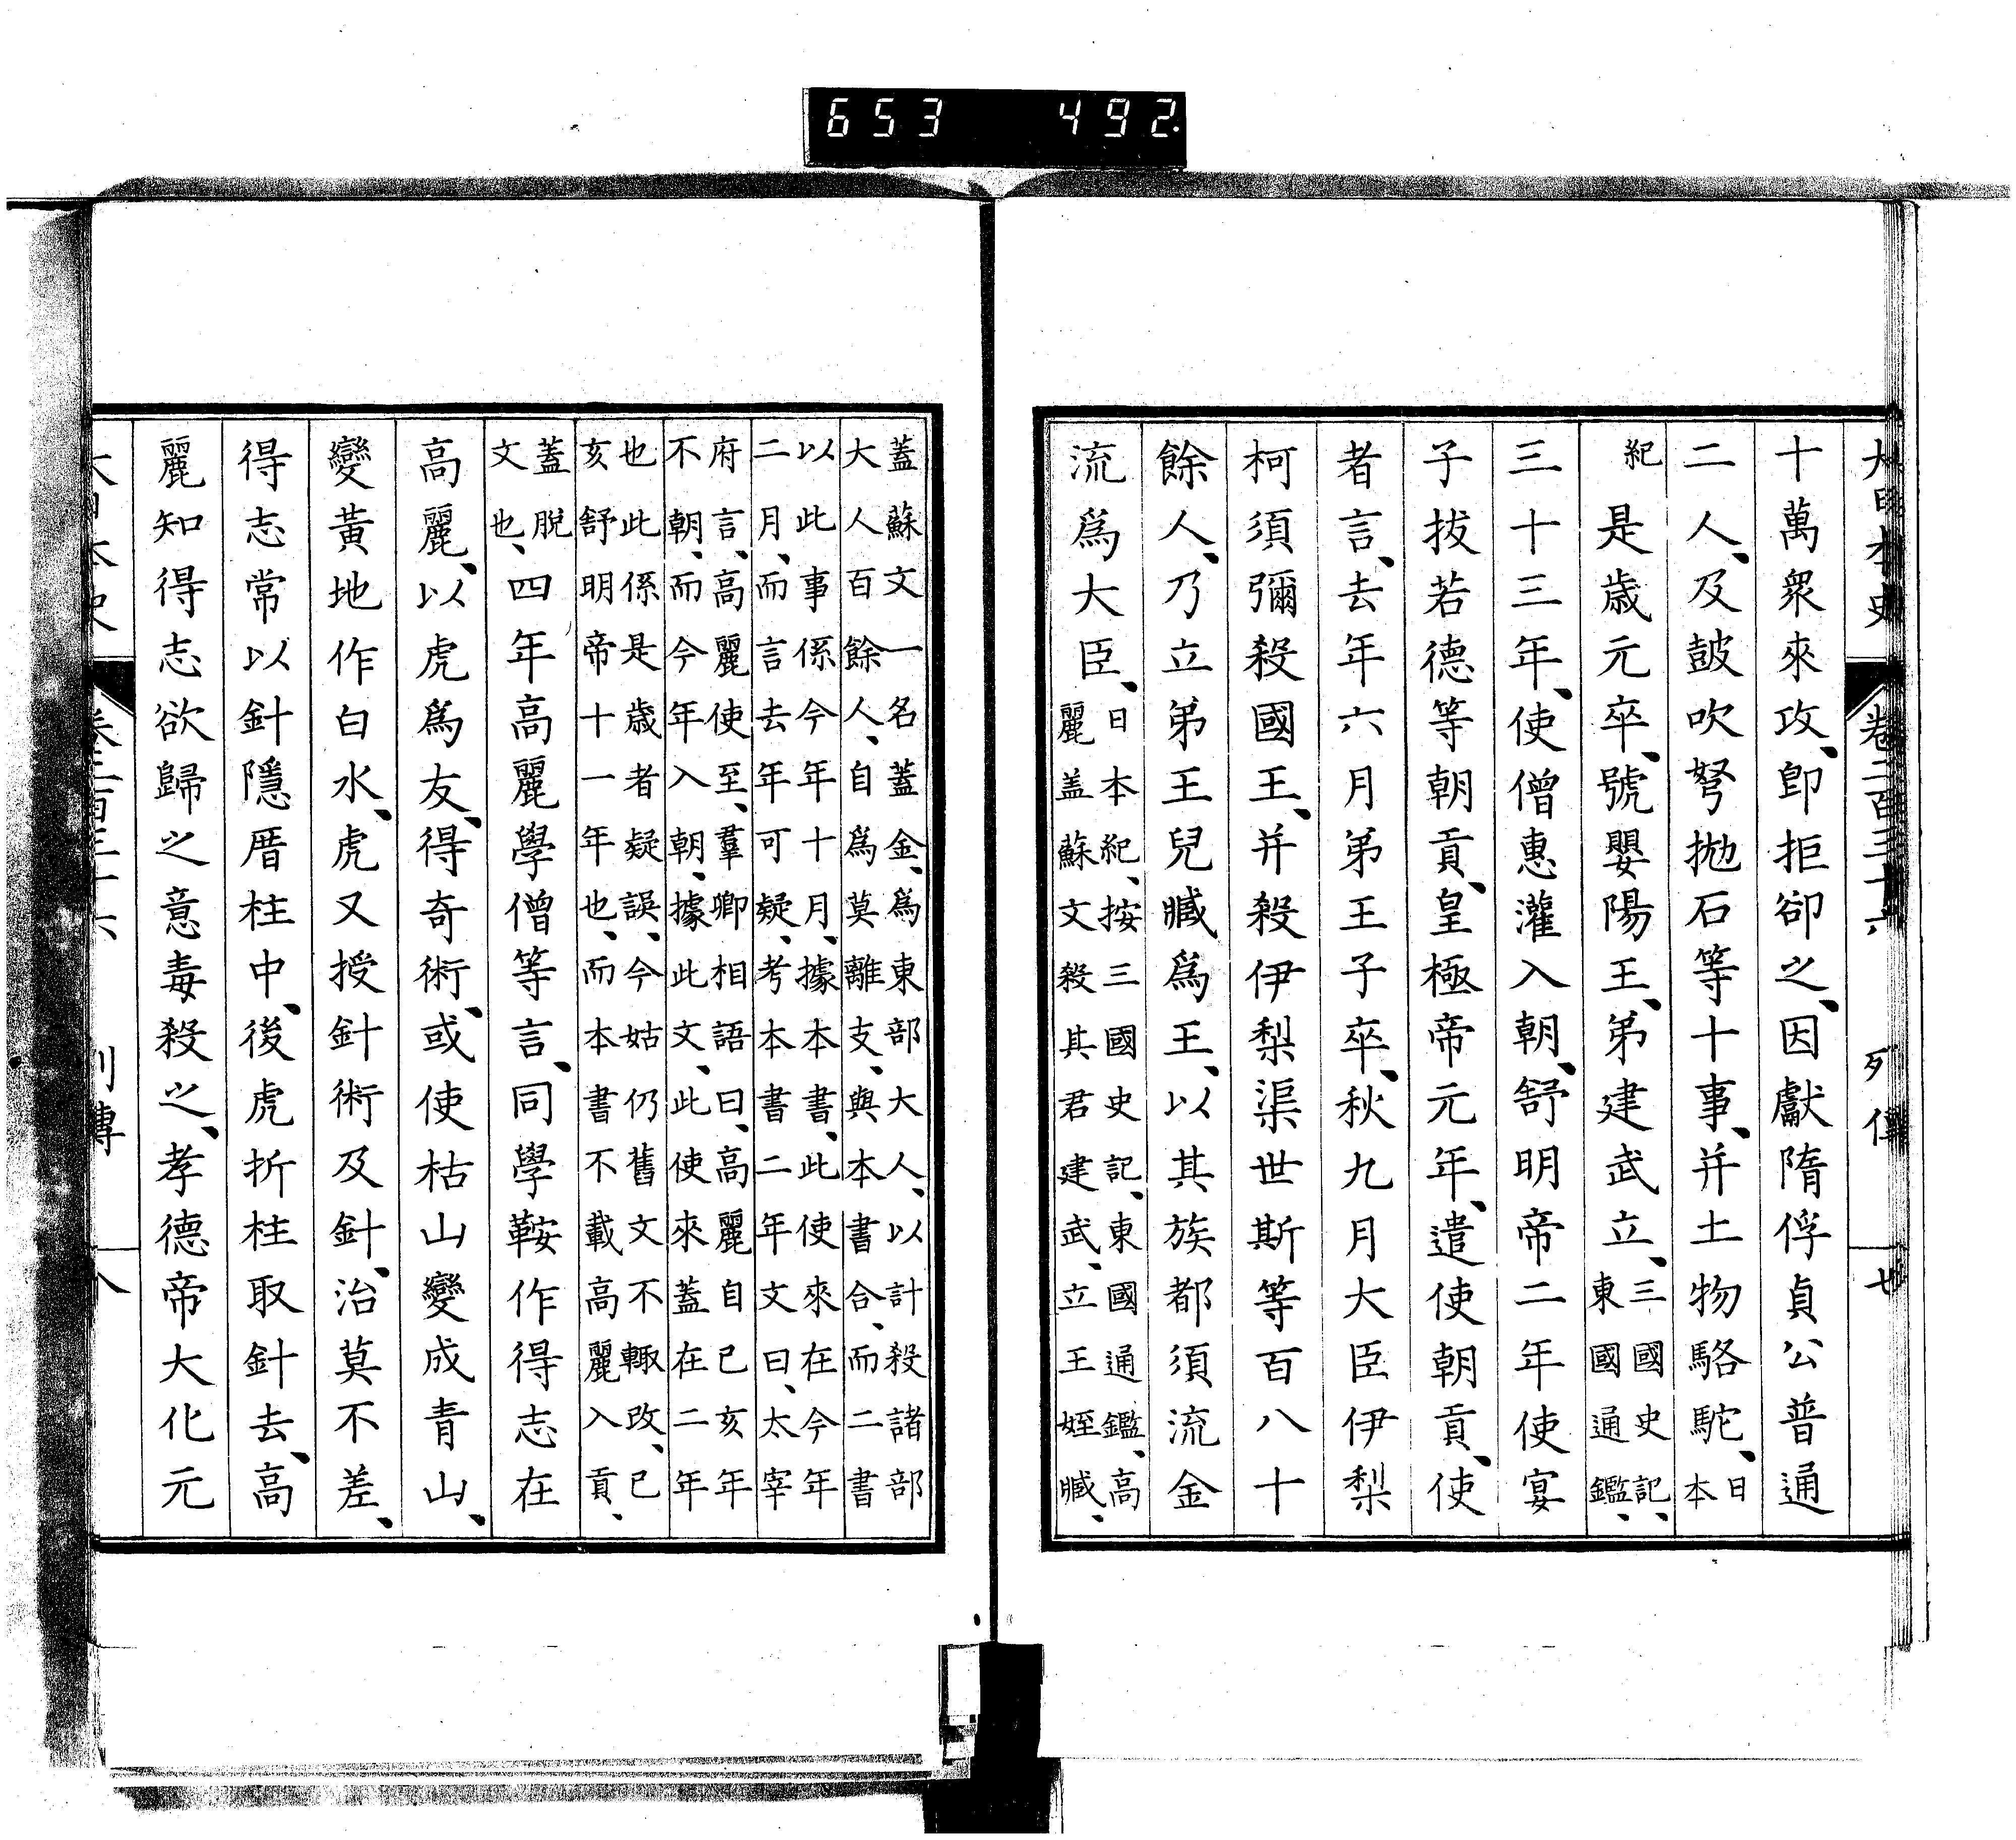 653 492.
大日本史 卷二百三十六 列傳 七
十萬衆來攻、卽拒卻之、因獻隋俘貞公普通
二人、及皷吹弩抛石等十事、幷土物駱駝、日本
紀是歳元卒、號嬰陽王、弟建武立、三國史記、東國通鑑、
三十三年、使僧惠灌入朝、舒明帝二年使宴
子拔若德等朝貢、皇極帝元年、遣使朝貢、使
者言、去年六月弟王子卒、秋九月大臣伊梨
柯須彌殺國王、幷殺伊梨渠世斯等百八十
餘人、乃立弟王兒臧爲王、以其族都須流金
流爲大臣、日本紀、按三國史記、東國通鑑、高麗盖蘇文殺其君建武、立王姪臧、
蓋蘇文一名蓋金、爲東部大人、以計殺諸部大人百餘人、自爲莫離支、與本書合、而二書
以此事係今年十月、據本書、此使來在今年二月、而言去年可疑、考本書二年文曰、太宰
府言、高麗使至、羣卿相語曰、高麗自己亥年不朝、而今年入朝、據此文、此使來蓋在二年
也此係是歳者疑誤、今姑仍舊文不輙改、已亥舒明帝十一年也、而本書不載高麗入貢、
蓋脫文也、四年高麗學僧等言、同學鞍作得志在
高麗、以虎爲友、得奇術、或使枯山變成青山、
變黃地作白水、虎又授針術及針、治莫不差、
得志常以針隱厝柱中、後虎折柱取針去、高
麗知得志欲歸之意毒殺之、孝德帝大化元
大日本史 卷二百三十六 列傳 八